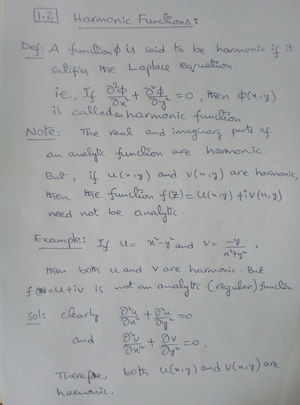 1.2 Harmonic Functions:
Def: A function ϕ is said to be harmonic if it
satisfies the Laplace equation
i.e., If ∂²ϕ/∂x² + ∂²ϕ/∂y² = 0, then ϕ(x,y)
is called an harmonic function
Note: The real and imaginary parts of
an analytic function are harmonic.
But, if u(x,y) and v(x,y) are harmonic,
then the function f(z) = u(x,y) + iv(x,y)
need not be analytic.
Example: If u = x²-y² and v = -y/x²+y².
then both u and v are harmonic. But
f = u+iv is not an analytic (regular) function.
Sol: clearly ∂²u/∂x² + ∂²u/∂y² = 0
and ∂²v/∂x² + ∂²v/∂y² = 0.
Therefore, both u(x,y) and v(x,y) are
harmonic.